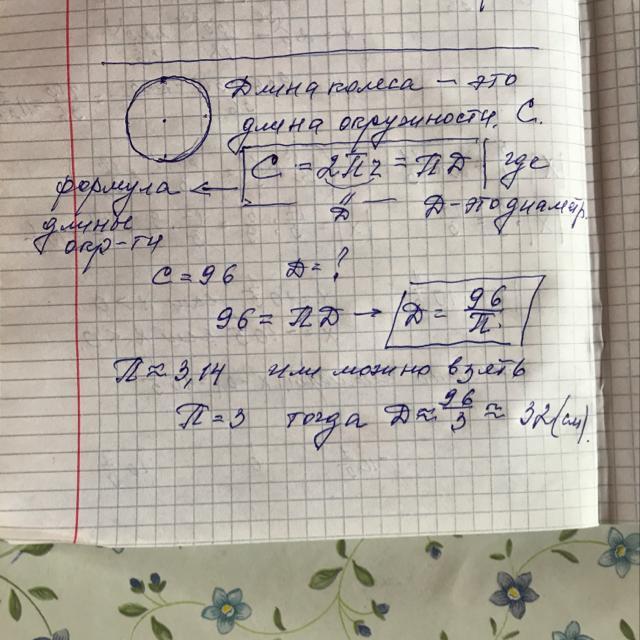 Длина колеса – это
длина окружности. С.
С = 2Пr = ПD где
формула ←
длины
окр-ти
D
D – это диаметр
С = 96 D = ?
96 = ПD → D = 96/П.
П ≈ 3,14 или можно взять
П = 3 тогда D ≈ 96/3 ≈ 32 (см).